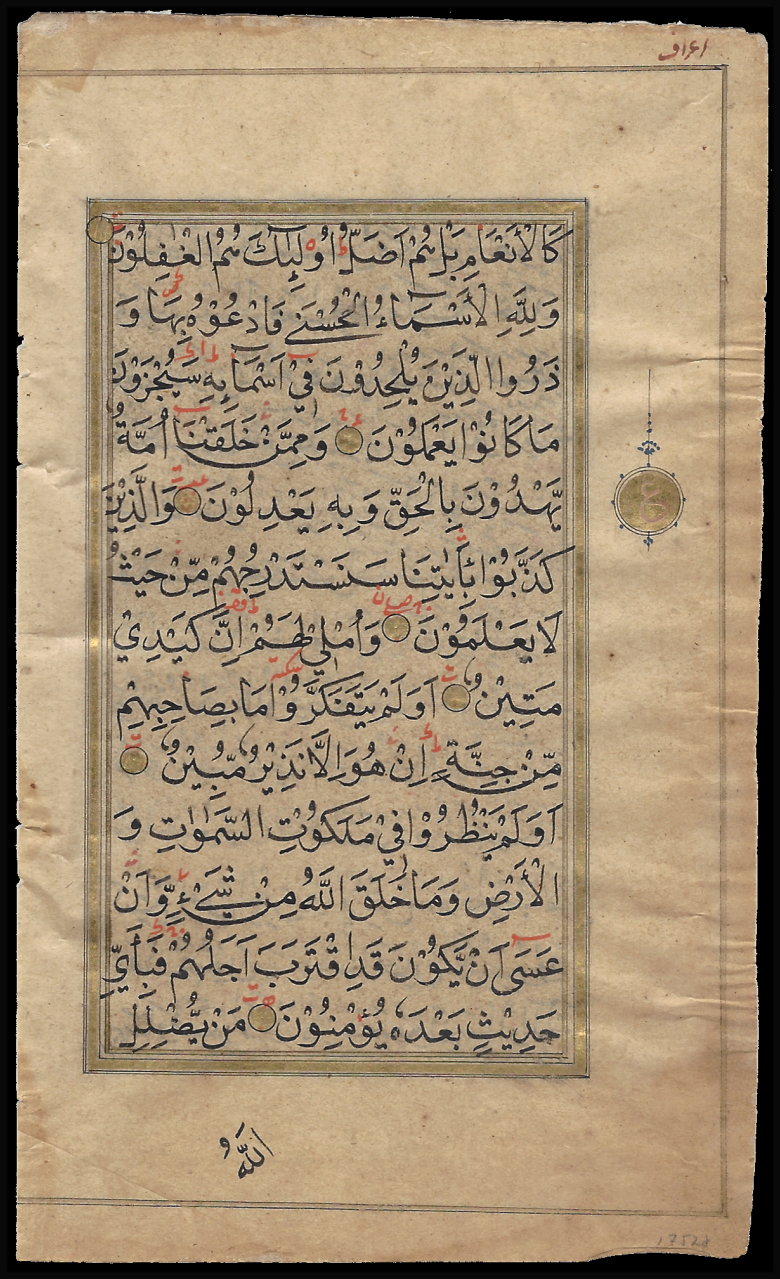 اعراف
كَالْاَنْعَامِ بَلْ هُمْ اَضَلُّ اُولٰٓئِكَ هُمُ الْغٰفِلُوْنَ
وَلِلّٰهِ الْاَسْمَآءُ الْحُسْنٰى فَادْعُوْهُ بِهَا وَ
ذَرُوا الَّذِيْنَ يُلْحِدُوْنَ فِيْٓ اَسْمَآئِهٖ سَيُجْزَوْنَ
مَا كَانُوْا يَعْمَلُوْنَ وَمِمَّنْ خَلَقْنَآ اُمَّةٌ
يَّهْدُوْنَ بِالْحَقِّ وَبِهٖ يَعْدِلُوْنَ وَالَّذِيْنَ
كَذَّبُوْا بِاٰيٰتِنَا سَنَسْتَدْرِجُهُمْ مِّنْ حَيْثُ
لَا يَعْلَمُوْنَ وَاُمْلِيْ لَهُمْ اِنَّ كَيْدِيْ
مَتِيْنٌ اَوَلَمْ يَتَفَكَّرُوْا مَا بِصَاحِبِهِمْ
مِّنْ جِنَّةٍ اِنْ هُوَ اِلَّا نَذِيْرٌ مُّبِيْنٌ
اَوَلَمْ يَنْظُرُوْا فِيْ مَلَكُوْتِ السَّمٰوٰتِ وَ
الْاَرْضِ وَمَا خَلَقَ اللّٰهُ مِنْ شَيْءٍ وَّاَنْ
عَسٰٓى اَنْ يَّكُوْنَ قَدِ اقْتَرَبَ اَجَلُهُمْ فَبِاَيِّ
حَدِيْثٍ بَعْدَهٗ يُؤْمِنُوْنَ مَنْ يُّضْلِلِ
اللّٰهُ